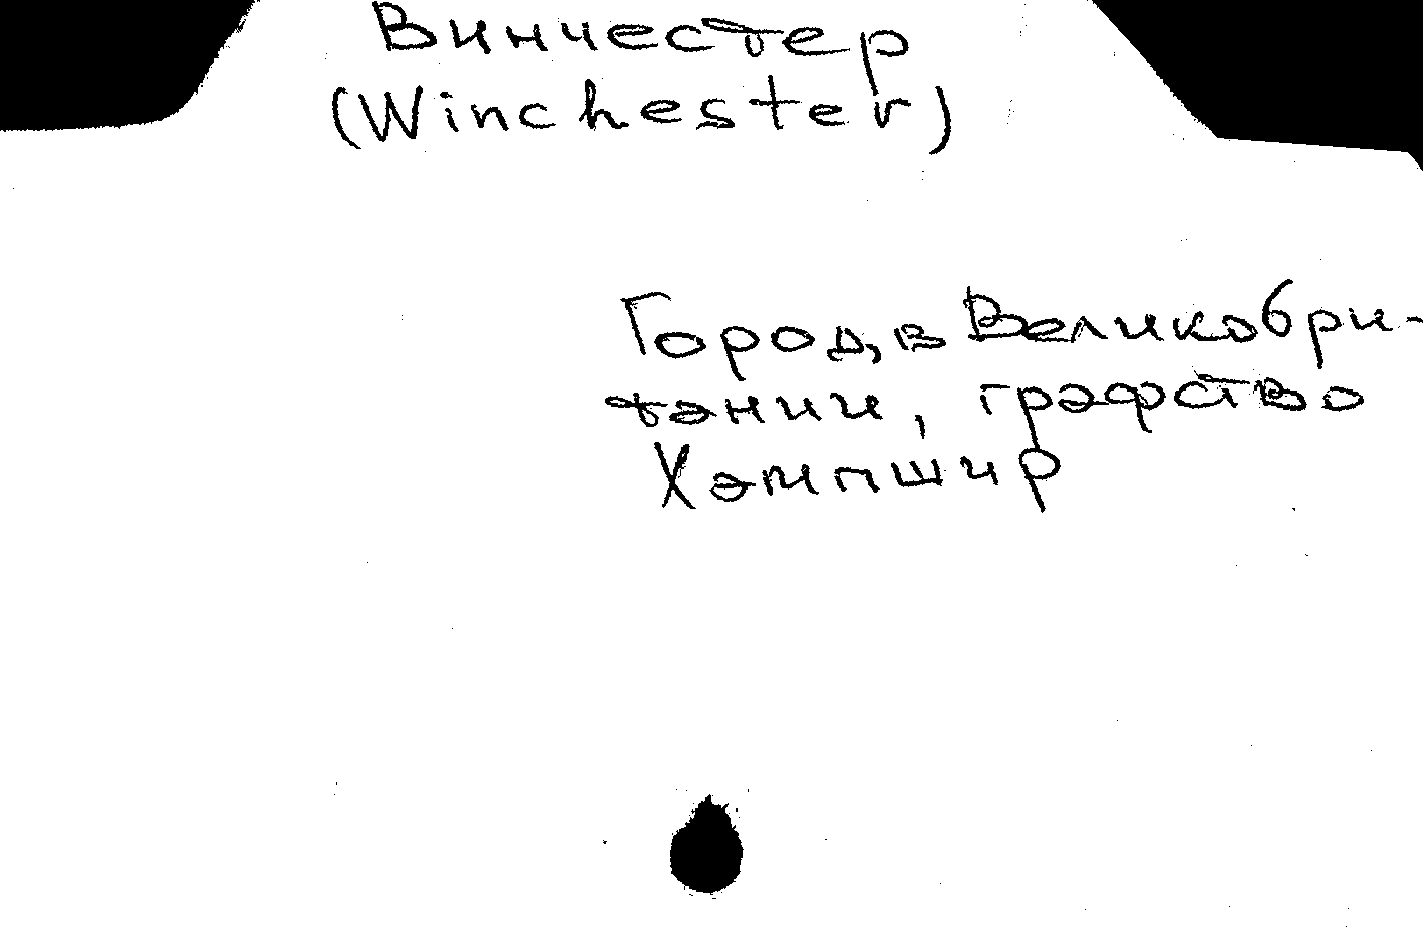 Винчестер
(Winchester)
Город, в Великобри-
тании, графство
Хэмпшир